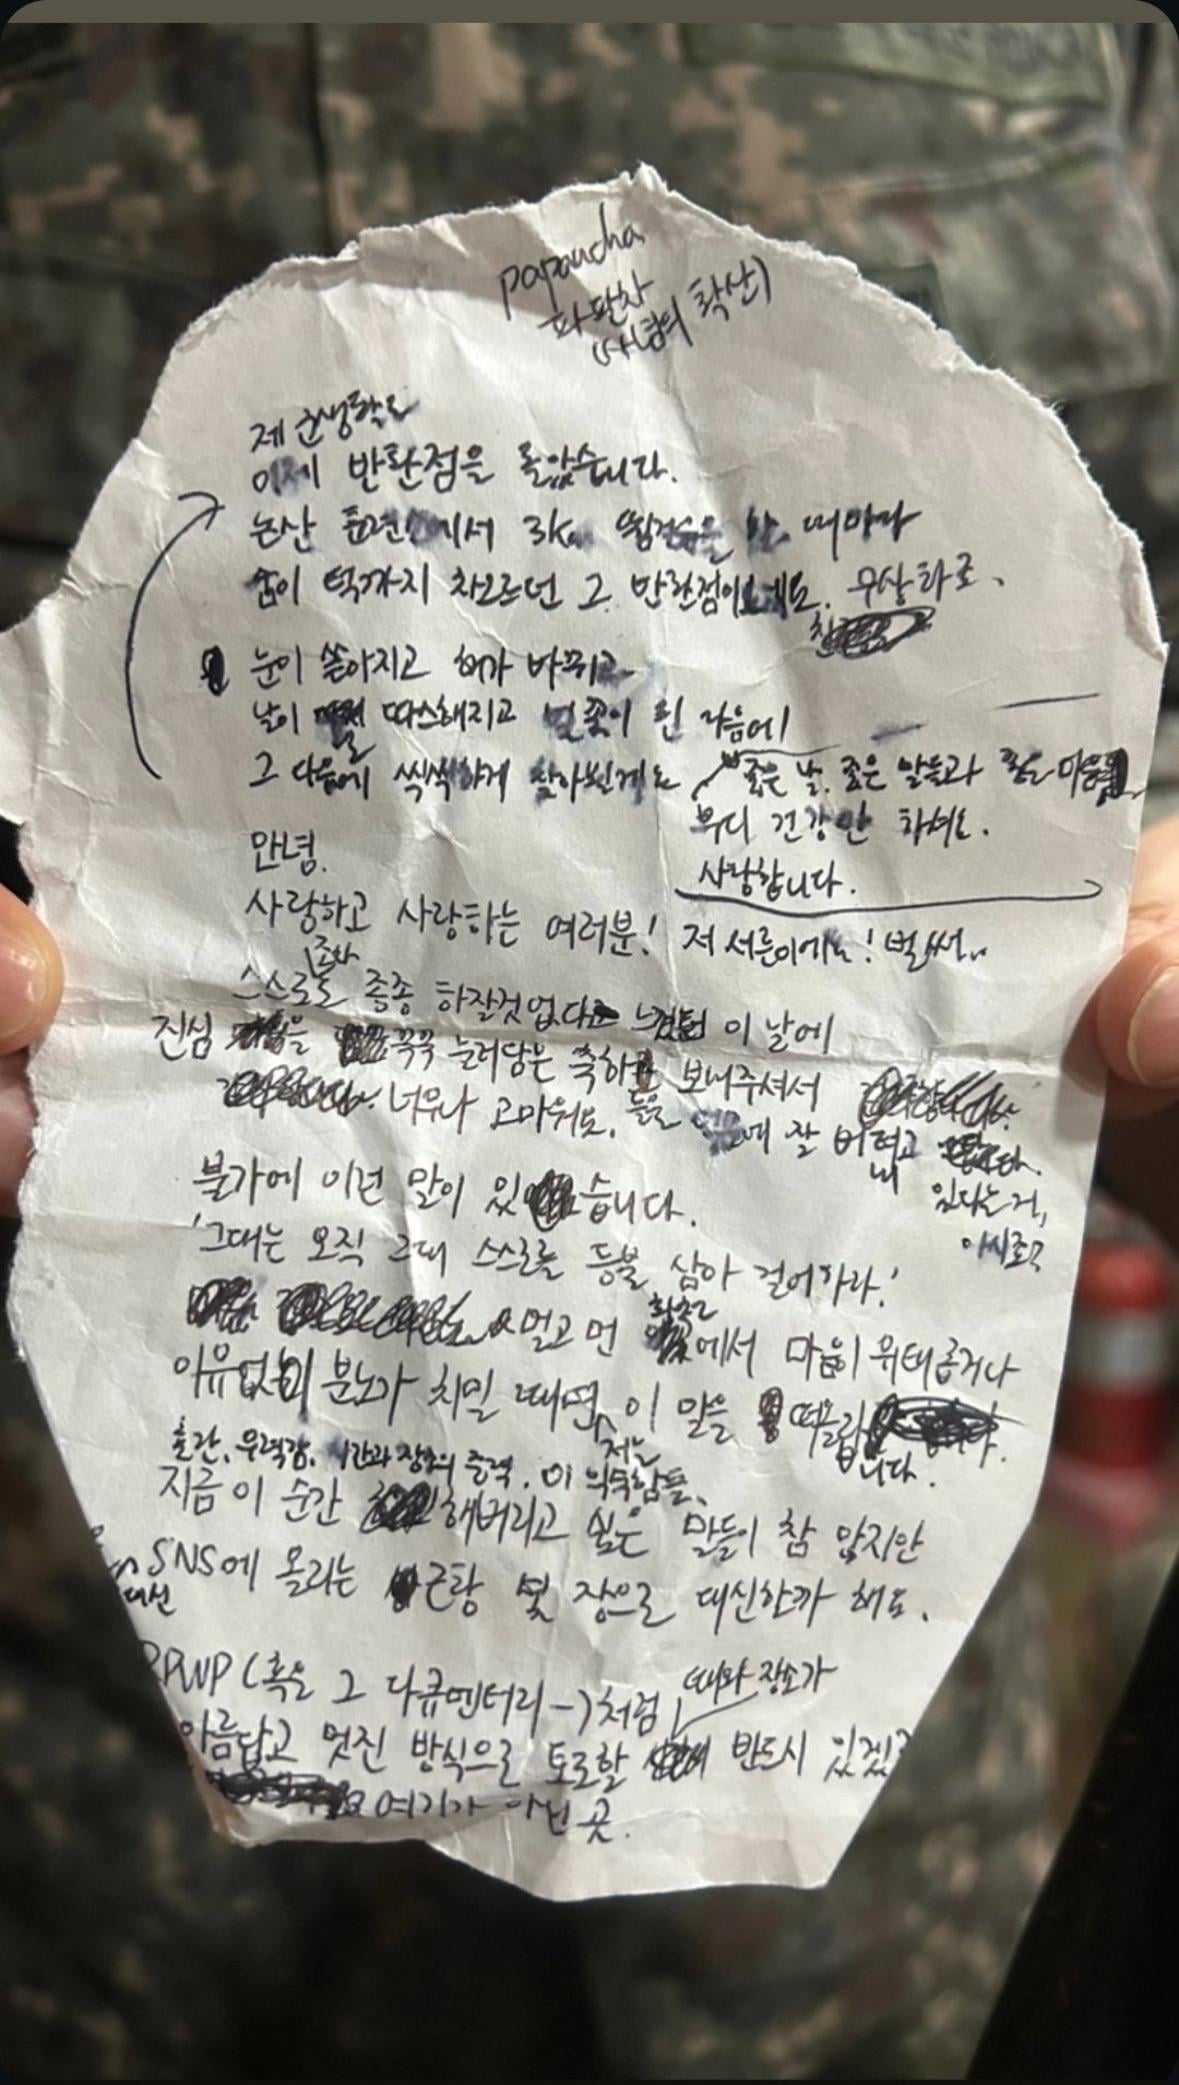 papancha
파판차
(사념의 확산)
제 군생활도
이제 반환점을 돌았습니다.
논산 훈련소에서 3km 뜀걸음을 할 때마다
숨이 턱까지 차오르던 그 반환점이요.
눈이 쏟아지고 해가 바뀌고
날이 따스해지고 벚꽃이 핀 다음에
그 다음에 씩씩하게 찾아뵐게요
좋은 날. 좋은 말들과 좋은 마음
부디 건강만 하셔요.
사랑합니다.
안녕.
사랑하고 사랑하는 여러분! 저 서른이에요! 벌써..
조차
스스로도 종종 하잘것없다 느꼈던 이 날에
진심 을 꾹꾹 눌러담은 축하 보내주셔서
너무나 고마워요. 들을 잘 버
텨
내고
있다는 거,
아시죠?
불가에 이런 말이 있습니다.
'그대는 오직 그대 스스로를 등불 삼아 걸어가라.'
멀고 먼 에서 마음이 위태롭거나
화천
이유없이 분노가 치밀 때면, 이 말을 떠올립
니다.
혼란, 무력감, 시간과 장소의 중력. 이 의뭉함들,
저는
지금 이 순간 해버리고 싶은 말들이 참 많지만
SNS에 올리는 근황 몇 장으로 대신할까 해요.
대신
RPWP (혹은 그 다큐멘터리-)처럼
때와 장소가
아름답고 멋진 방식으로 토로할 반드시 있겠죠
여기가 아닌 곳.